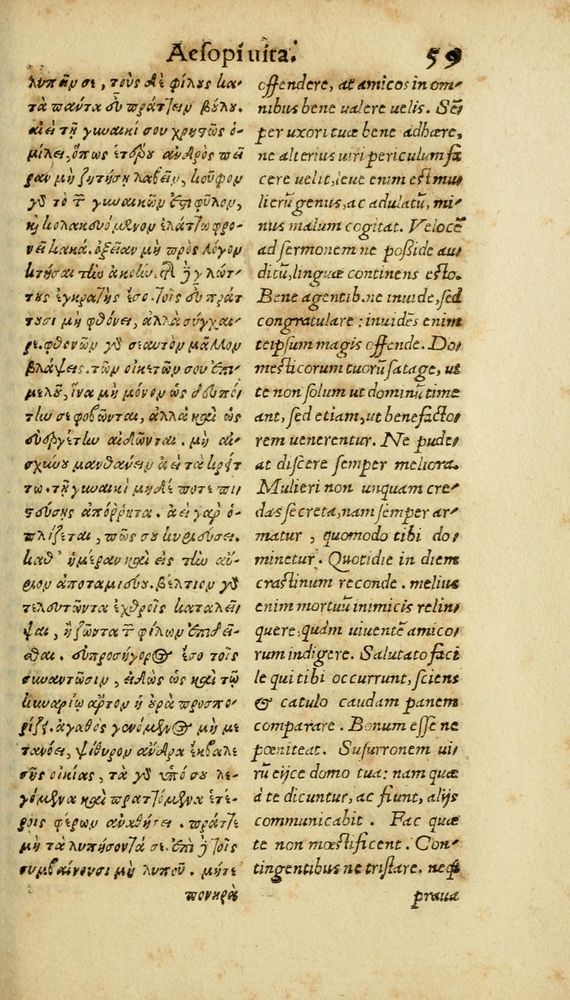 Aesopi uita.
59
λυπᾶν σε, τοὺς δὲ φίλους κα-
τὰ παντα εὖ πράττειν βούλου.
ἀεὶ τῇ γυναικί σου χρηστῶς ὁ-
μίλει, ὅπως ἑτέρου ἀνδρὸς πεῖ
ραν μὴ ζητήσῃ λαβεῖν, κοῦφον
γὰρ τὸ τῶν γυναικῶν ἐστι φῦλον,
καὶ κολακευόμενον ἐλάττω φρο-
νεῖ κακά. ὀξεῖαν μὴ πρὸς λόγον
κτῆσαι τὴν ἀκοήν. καὶ τῆς γλώτ-
της ἐγκρατὴς ἔσο. τοῖς εὖ πράτ
τουσι μὴ φθόνει, ἀλλὰ σύγχαι-
ρε. φθονῶν γὰρ σεαυτὸν μᾶλλον
βλάψεις. τῶν οἰκετῶν σου ἐπι-
μελοῦ, ἵνα μὴ μόνον ὡς δεσπό-
την σε φοβῶνται, ἀλλὰ καὶ ὡς
εὐεργέτην αἰδῶνται. μὴ αἰ-
σχύνου μανθάνειν ἀεὶ τὰ κρείτ
τω. τῇ γυναικὶ μηδέ ποτε πι-
στεύσῃς ἀπόρρητα. ἀεὶ γὰρ ὁ-
πλίζεται, πῶς σου κυριεύσει.
καθ' ἡμέραν καὶ εἰς τὴν αὔ-
ριον ἀποταμιεύου. βέλτιον γὰρ
τελευτῶντα ἐχθροῖς καταλεῖ-
ψαι, ἢ ζῶντα τῶν φίλων ἐπιδεῖ-
σθαι. εὐπροσήγορος ἔσο τοῖς
συναντῶσιν, εἰδὼς ὡς καὶ τῷ
κυναρίῳ ἄρτον ἡ οὐρὰ προσπο-
ρίζει. ἀγαθὸς γενόμενος μὴ με
τανόει, ψίθυρον ἄνδρα ἔκβαλε
σῆς οἰκίας, τὰ γὰρ ὑπό σου λε-
γόμενα καὶ πραττόμενα ἑτέ-
ροις φέρων ἀναθήσει. πράττε
μὴ τὰ λυπήσοντά σε. ἐπὶ τοῖς
συμβαίνουσι μὴ λυποῦ. μήτε
πονηρὰ
offendere, at amicos in om-
nibus bene ualere uelis. Sẽ
per uxori tuæ bene adhære,
ne alterius uiri periculum fa
cere uelit, leue enim est mu-
lierũ genus, ac adulatũ, mi-
nus malum cogitat. Velocẽ
ad sermonem ne poßide au-
ditũ, linguæ continens esto.
Bene agentib. ne inuide, sed
congratulare: inuidẽs enim
teipsum magis offende. Do-
mesticorum tuorũ satage, ut
te non solum ut dominũ time
ant, sed etiam, ut benefacto-
rem uenerentur. Ne pude-
at discere semper meliora.
Mulieri non unquam cre-
das secreta, nam semper ar-
matur, quomodo tibi do-
minetur. Quotidie in diem
crastinum reconde. melius
enim mortuũ inimicis relin-
quere, quàm uiuentẽ amico-
rum indigere. Salutato faci
le qui tibi occurrunt, sciens
& catulo caudam panem
comparare. Bonum esse ne
pœniteat. Susurronem ui-
rũ eijce domo tua: nam quæ
à te dicuntur, ac fiunt, alijs
communicabit. Fac quæ
te non mœstificent. Con-
tingentibus ne tristare. neq;
praua